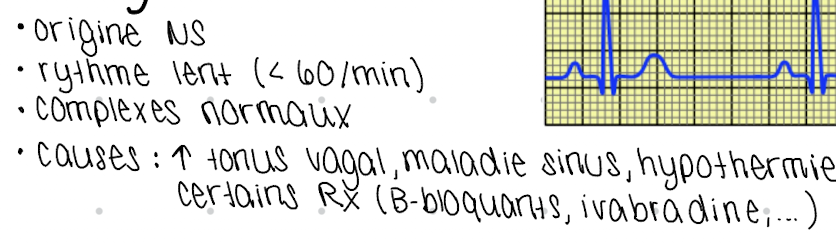 • origine NS
• rythme lent (< 60/min)
• complexes normaux
• causes : ↑ tonus vagal, maladie sinus, hypothermie
certains RX (B-bloquants, ivabradine,...)